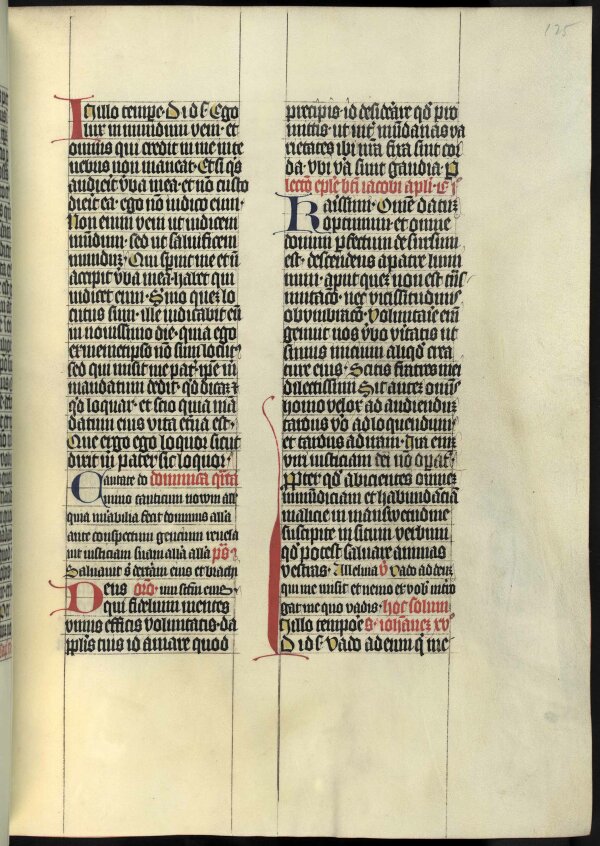 125
In illo tempe· Di. ih̄s. Ego
lux in mundum veni· et
omnis qui credit in me in te
nebus non maneat· Et si q̄s
audierit vba mea· et nō custo
dierit ea· ego nō iudico eum·
Non enim veni ut iudicem
mūdum· sed ut saluificem
mundum· Qui spnit me et nō
accipit vba mea· habet qui
iudicet eum· Sermo quez lo
cutus sum· ille iudicabit eū
in nouissimo die· quia ego
ex memetipso nō sum locut9·
sed qui misit me pat· ipse m̄
mandatum dedit· qd dicaz z
qd loquar· et scio quia mā
datum eius vita etna est·
Que ergo ego loquor sicut
dixit m̄ pater sic loquor·
Cantate do dominica q̄rta
mino canticum nouum alla
quia mirabilia fecit dominus alla
ante conspectum gencium reuela
uit iusticiam suam alla alla pō
Saluauit s̄ dextera eius et brachi
Deus orō um sctm eius·
qui fidelium mentes
vnius efficis voluntatis· da
pplis tuis id amare quod
precipis· id desiderare qd pro
mittis· ut int mūdanas va
rietates ibi nr̄a fixa sint cor
da· vbi va sunt gaudia· P
lectō epl̄e bt̄i iacobi apl̄i·
Karissimi· Omne datuz
optimum et omne
donum pfectum de sursum
est· descendens a patre lumi
num· aput quez non est tūs
mutacō· nec vicissitudinis
obumbracō· Voluntarie em̄
genuit nos vbo vitatis ut
simus inicium aliqd crea
ture eius· Scitis fratres mei
dilectissimi Sit autez omīs
homo velox ad audienduz
tardus vo ad loquendum
et tardus ad iram· Ira eniz
viri iusticiam dei nō opat·
Propter qd abicientes omnez
inmūdiciam et habundāciā
malicie in mansuetudine
suscipite insitum verbum
qd potest saluare animas
vestras· Alleluia v̄ Vado ad eūz
qui me misit et nemo ex vobis intro
gat me quo vadis· hoc solum
In illo tempoe s· iohannez xvi
Di. ih̄s. Vado ad eum q̄ me